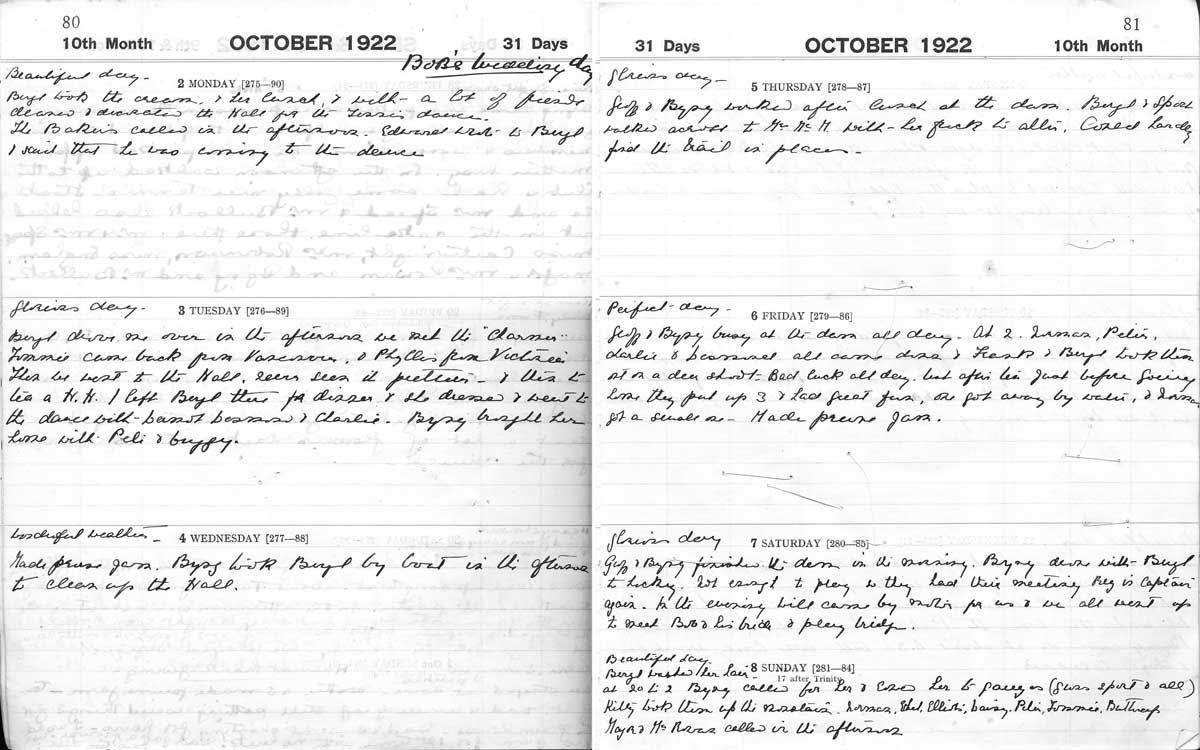 80
10th Month OCTOBER 1922 31 Days
Bob's Wedding day
Beautiful day.
2 MONDAY [275—90]
Beryl took the cream, & her lunch, & with a lot of friends
cleaned & decorated the Hall for the Tennis dance.
The Bakers called in the afternoon. Edward wrote to Beryl
& said that he was coming to the dance
Glorious day.
3 TUESDAY [276—89]
Beryl drove me over in the afternoon we met the "Charmer"
Tommie came back from Vancouver, & Phyllis from Victoria
Then we went to the Hall, never seen it prettier — & then to
tea a H.H. I left Beryl there for dinner & she dressed & went to
the dance with & Charlie. Byng brought her
home with Peli & buggy.
Wonderful weather —
4 WEDNESDAY [277—88]
Made prune Jam. Byng took Beryl by boat in the afternoon
to clean up the Hall.
81
31 Days OCTOBER 1922 10th Month
Glorious day —
5 THURSDAY [278—87]
Geoff & Byng worked after lunch at the dam. Beryl & Sport
walked across to Mr Mc M. with her to . Could hardly
find the trail in places —
Perfect day —
6 FRIDAY [279—86]
Geoff & Byng busy at the dam all day. At 2. Norman, Peter,
Charlie & all came down & Frank & Beryl took them
out on a deer shoot — Bad luck all day, but after tea Just before going
home they put up 3 & had great fun, one got away by water, & Norman
got a small one — Made prune Jam.
Glorious day
7 SATURDAY [280—85]
Geoff & Byng finished the dam in the morning. Byng drove with Beryl
to hockey. Not enough to play so they had their meeting Reg is Captain
again. In the evening Will came by motor for us & we all went up
to meet Bob & his bride & play bridge.
Beautiful day.
8 SUNDAY [281—84]
17 after Trinity
Beryl washed her hair
at 20 to 2 Byng called for her & her to Ganges (guns sport & all)
Kitty took them up the mountain. Norman, , , Daisy, Peli, Tommie,
Major & Mrs called in the afternoon